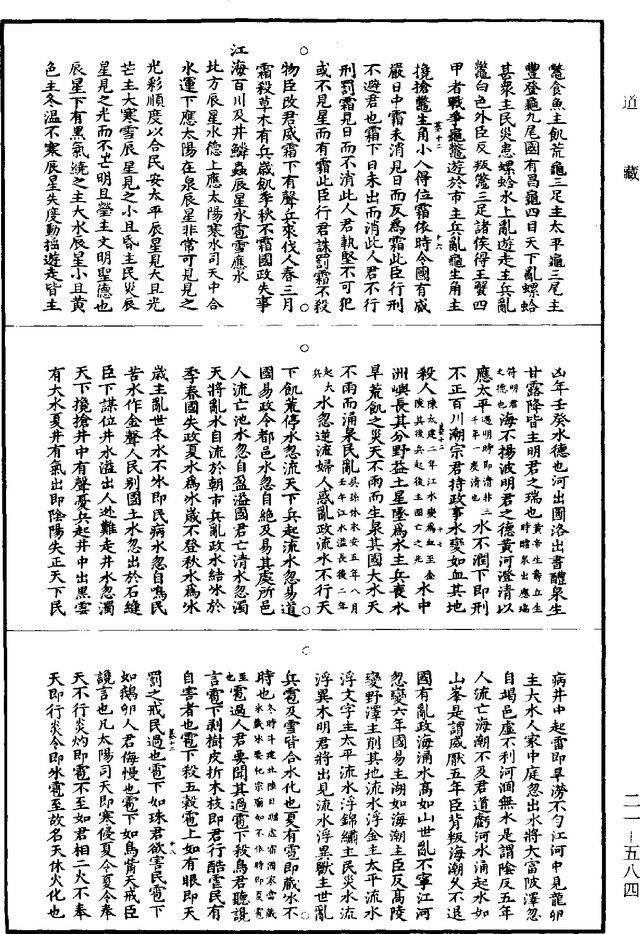 道藏
鼈食魚主飢荒龜三足主太平龜三尾主
豐登龜九尾國有昌龜四目天下亂螺蛤
甚衆主民災患螺蛤水上亂遊走主兵亂
鼈白色外臣反叛鼈三足諸侯得王蟹四
甲者戰爭龜鼈遊於市主兵亂龜生角主
攙搶鼈生角小人得位霜依時令國有威
嚴日中霜未消見日而反爲霜此臣行刑
不避君也霜下日未出而消此人君不行
刑罰霜見日而不消此人君執堅不可犯
或不見星而有霜此臣行君誅罰霜不殺
物臣敗君威霜下有聲兵來伐人春三月
霜殺草木有兵歲飢季秋不霜國政失事
江海百川及井鱗蟲辰星永雹雪應水
北方辰星水德上應太陽寒水司天中合
水運下應太陽在泉辰星非常可見見之
光彩順度以合民安太平辰星見大且光
芒主大寒雪辰星見之小且昏主民災辰
星見之光而不芒明且瑩主文明聖德也
辰星下有黑氣繞之主大水辰星小且黃
色主冬溫不寒辰星失度動搖遊走皆主
凶年壬癸水德也河出圖洛出書醴泉生
甘露降皆主明君之瑞也黃帝生壽丘生時醴泉出應瑞
符明君之德也海不揚波明君之德黃河澄清以
應太平遇明時即清非二千年一度清也水不潤下即刑
不正百川潮宗君持政事水變如血其地
殺人陳太建二年江水變爲血至金陵其後兵起後主國亡之兆水中
洲嶼長其分野益土星墜爲水主兵喪水
旱荒飢之災天不雨而生泉其國大水天
不雨而涌泉民亂吳孫休永安五年八月壬午江水溢長後二年
起大兵水忽逆流婦人惑亂政流水不行天
下飢荒停水忽流天下兵起流水忽易道
國易政令都邑水忽自絕及易其處所邑
人流亡池水忽自盈溢國君亡清水忽濁
天將亂水自流於朝市兵亂政水結氷於
季春國失政夏水爲氷歲不登秋水爲氷
歲主亂世冬水不氷即民病水忽自鳴民
苦水作金聲人民别國土水忽出於石縫
臣下謀位井水溢出人迯難走井水忽濁
天下攙搶井中有聲憂兵起井中出黑雲
有大水夏井有氣出即陰陽失正天下民
病井中起雷即旱澇不勻江河中見龍卵
主大水人家中庭忽出水將大富陂澤忽
自竭邑虛不利河涸無水是謂陰反五年
人流亡海潮不及君道虧河水涌起水如
山峯是謂威厭五年臣背叛海潮久不退
國有亂政海涌水高如山世亂不寧江河
忽變六年國易主湖如海潮主臣反髙陵
變野澤主削其地流水浮金主太平流水
浮文字主太平流水浮錦繡主民災水流
浮異木明君將出見流水浮異獸主世亂
兵雹及雪皆合水化也夏有雹即藏氷不
時也冬時斗建北陸日躔虛宿國家當藏氷藏氷要化宗廟如不依時即夏雹
至也雹過人君要聞其過雹下殺鳥君聽讒
言雹下剥樹皮折木枝即君行酷雲民有
自害者也雹下殺五穀雹上如有眼即天
罰之戒民過也雹下如珠君欲害民雹下
如鵝卵人君侮慢也雹下如鳥觜天戒臣
讒言也凡太陽司天即寒侵夏令夏令奉
天不行炎灼即雹不至如君相二火不奉
天即行炎令即氷雹至故名天休火化也
二一—五八四